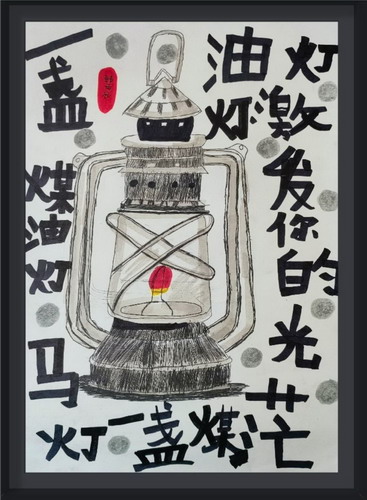 一盏
煤油灯
马灯
一盏煤
油灯
灯激发你的光芒